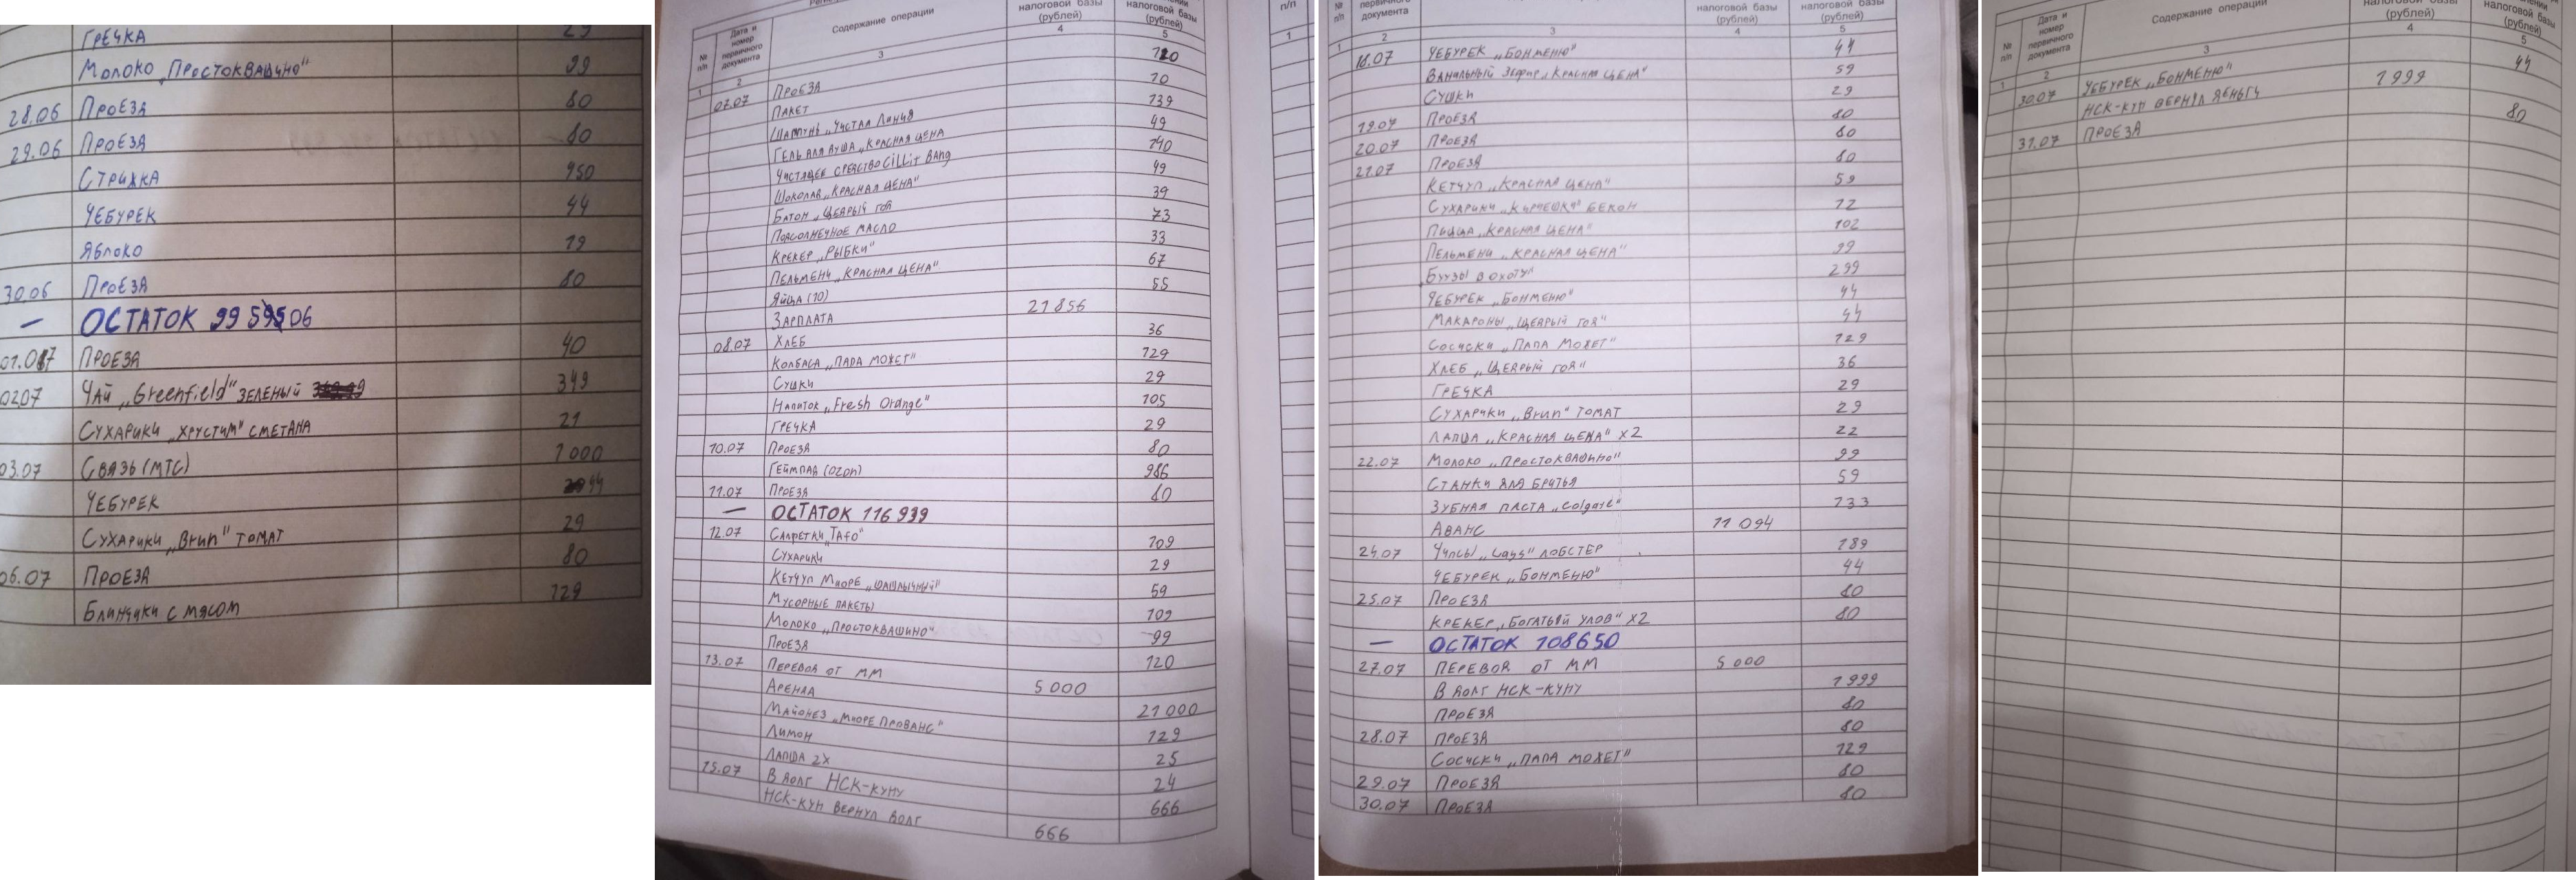 ГРЕЧКА 29
МОЛОКО „ПРОСТОКВАШИНО" 99
28.06 ПРОЕЗД 80
29.06 ПРОЕЗД 80
СТРИЖКА 950
ЧЕБУРЕК 44
ЯБЛОКО 19
30.06 ПРОЕЗД 80
— ОСТАТОК 99 506
01.07 ПРОЕЗД 40
02.07 ЧАЙ „Greenfield" ЗЕЛЕНЫЙ 349
СУХАРИКИ „ХРУСТИМ" СМЕТАНА 21
03.07 СВЯЗЬ (МТС) 1000
ЧЕБУРЕК 44
СУХАРИКИ „Brun" ТОМАТ 29
06.07 ПРОЕЗД 80
БЛИНЧИКИ С МЯСОМ 129
Содержание операции
налоговой базы (рублей)
налоговой базы (рублей)
№ п/п
Дата и номер первичного документа
1 2 3 4 5
07.07 ПРОЕЗД 120
ПАКЕТ 10
ШАМПУНЬ „ЧИСТАЯ ЛИНИЯ 139
ГЕЛЬ ДЛЯ ДУША „КРАСНАЯ ЦЕНА 49
ЧИСТЯЩЕЕ СРЕДСТВО CILLIT BANG 190
ШОКОЛАД „КРАСНАЯ ЦЕНА" 49
БАТОН „ЩЕДРЫЙ ГОД 39
ПОДСОЛНЕЧНОЕ МАСЛО 73
КРЕКЕР „РЫБКИ" 33
ПЕЛЬМЕНИ „КРАСНАЯ ЦЕНА" 67
ЯЙЦА (10) 55
ЗАРПЛАТА 21 856
08.07 ХЛЕБ 36
КОЛБАСА „ПАПА МОЖЕТ" 129
СУШКИ 29
НАПИТОК „Fresh Orange" 105
ГРЕЧКА 29
10.07 ПРОЕЗД 80
ГЕЙМПАД (OZON) 986
11.07 ПРОЕЗД 80
— ОСТАТОК 116 939
12.07 САЛФЕТКИ „TAFO" 109
СУХАРИКИ 29
КЕТЧУП МИОРЕ „ШАШЛЫЧНЫЙ" 59
МУСОРНЫЕ ПАКЕТЫ 109
МОЛОКО „ПРОСТОКВАШИНО" 99
ПРОЕЗД 120
13.07 ПЕРЕВОД ОТ ММ 5 000
АРЕНДА 21 000
МАЙОНЕЗ „МИОРЕ ПРОВАНС" 129
ЛИМОН 25
ЛАПША 2X 24
15.07 В ДОЛГ НСК-КУНУ 666
НСК-КУН ВЕРНУЛ ДОЛГ 666
п/п
1
№ п/п
первичного документа
налоговой базы (рублей)
налоговой базы (рублей)
1 2 3 4 5
18.07 ЧЕБУРЕК „БОНМЕНЮ" 44
ВАНИЛЬНЫЙ ЗЕФИР „КРАСНАЯ ЦЕНА" 59
СУШКИ 29
19.07 ПРОЕЗД 80
20.07 ПРОЕЗД 80
21.07 ПРОЕЗД 80
КЕТЧУП „КРАСНАЯ ЦЕНА" 59
СУХАРИКИ „КИРИЕШКИ" БЕКОН 12
ПИЦЦА „КРАСНАЯ ЦЕНА" 102
ПЕЛЬМЕНИ „КРАСНАЯ ЦЕНА" 99
БУУЗЫ В ОХОТУ" 299
ЧЕБУРЕК „БОНМЕНЮ" 44
МАКАРОНЫ „ЩЕДРЫЙ ГОД" 44
СОСИСКИ „ПАПА МОЖЕТ" 129
ХЛЕБ „ЩЕДРЫЙ ГОД" 36
ГРЕЧКА 29
СУХАРИКИ „Brun" ТОМАТ 29
ЛАПША „КРАСНАЯ ЦЕНА" X2 22
22.07 МОЛОКО „ПРОСТОКВАШИНО" 99
СТАНКИ ДЛЯ БРИТЬЯ 59
ЗУБНАЯ ПАСТА „Colgate" 133
АВАНС 11 094
24.07 ЧИПСЫ „Lays" ЛОБСТЕР 189
ЧЕБУРЕК „БОНМЕНЮ" 44
25.07 ПРОЕЗД 80
КРЕКЕР „БОГАТЫЙ УЛОВ" X2 80
— ОСТАТОК 108650
27.07 ПЕРЕВОД ОТ ММ 5 000
В ДОЛГ НСК-КУНУ 1999
ПРОЕЗД 80
28.07 ПРОЕЗД 80
СОСИСКИ „ПАПА МОЖЕТ" 129
29.07 ПРОЕЗД 80
30.07 ПРОЕЗД 80
Содержание операции
налоговой базы (рублей)
налоговой базы (рублей)
№ п/п
Дата и номер первичного документа
1 2 3 4 5
30.07 ЧЕБУРЕК „БОНМЕНЮ" 44
НСК-КУН ВЕРНУЛ ДЕНЬГИ 1999
31.07 ПРОЕЗД 80